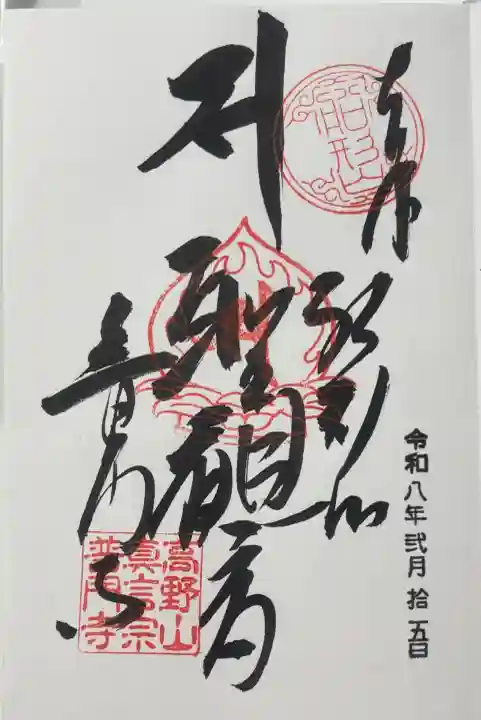 船形山
令和八年弐月拾五日
聖観音
普門寺
高野山
真言宗
普門寺